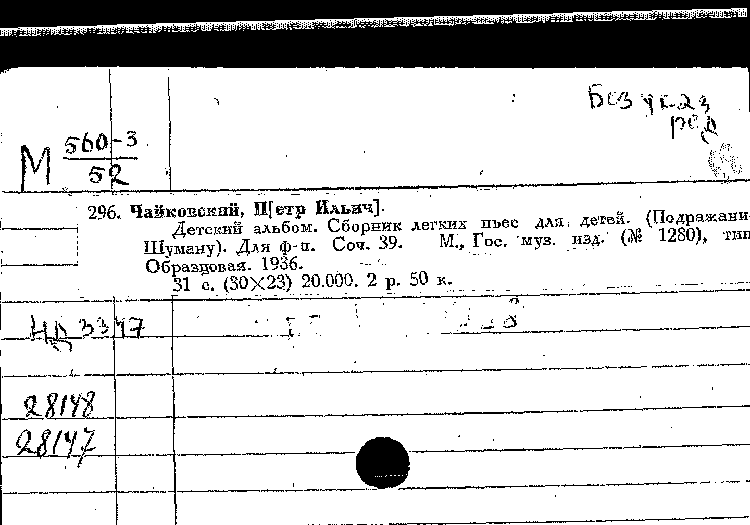 Без ук-з
ред
М 560-3
52
296. Чайковский, П[етр Ильич].
Детский альбом. Сборник легких пьес для детей. (Подражани
Шуману). Для ф-п. Соч. 39. М., Гос. муз. изд. (№ 1280), тип
Образцовая. 1936.
31 с. (30×23) 20.000. 2 р. 50 к.
3347
28148
28147